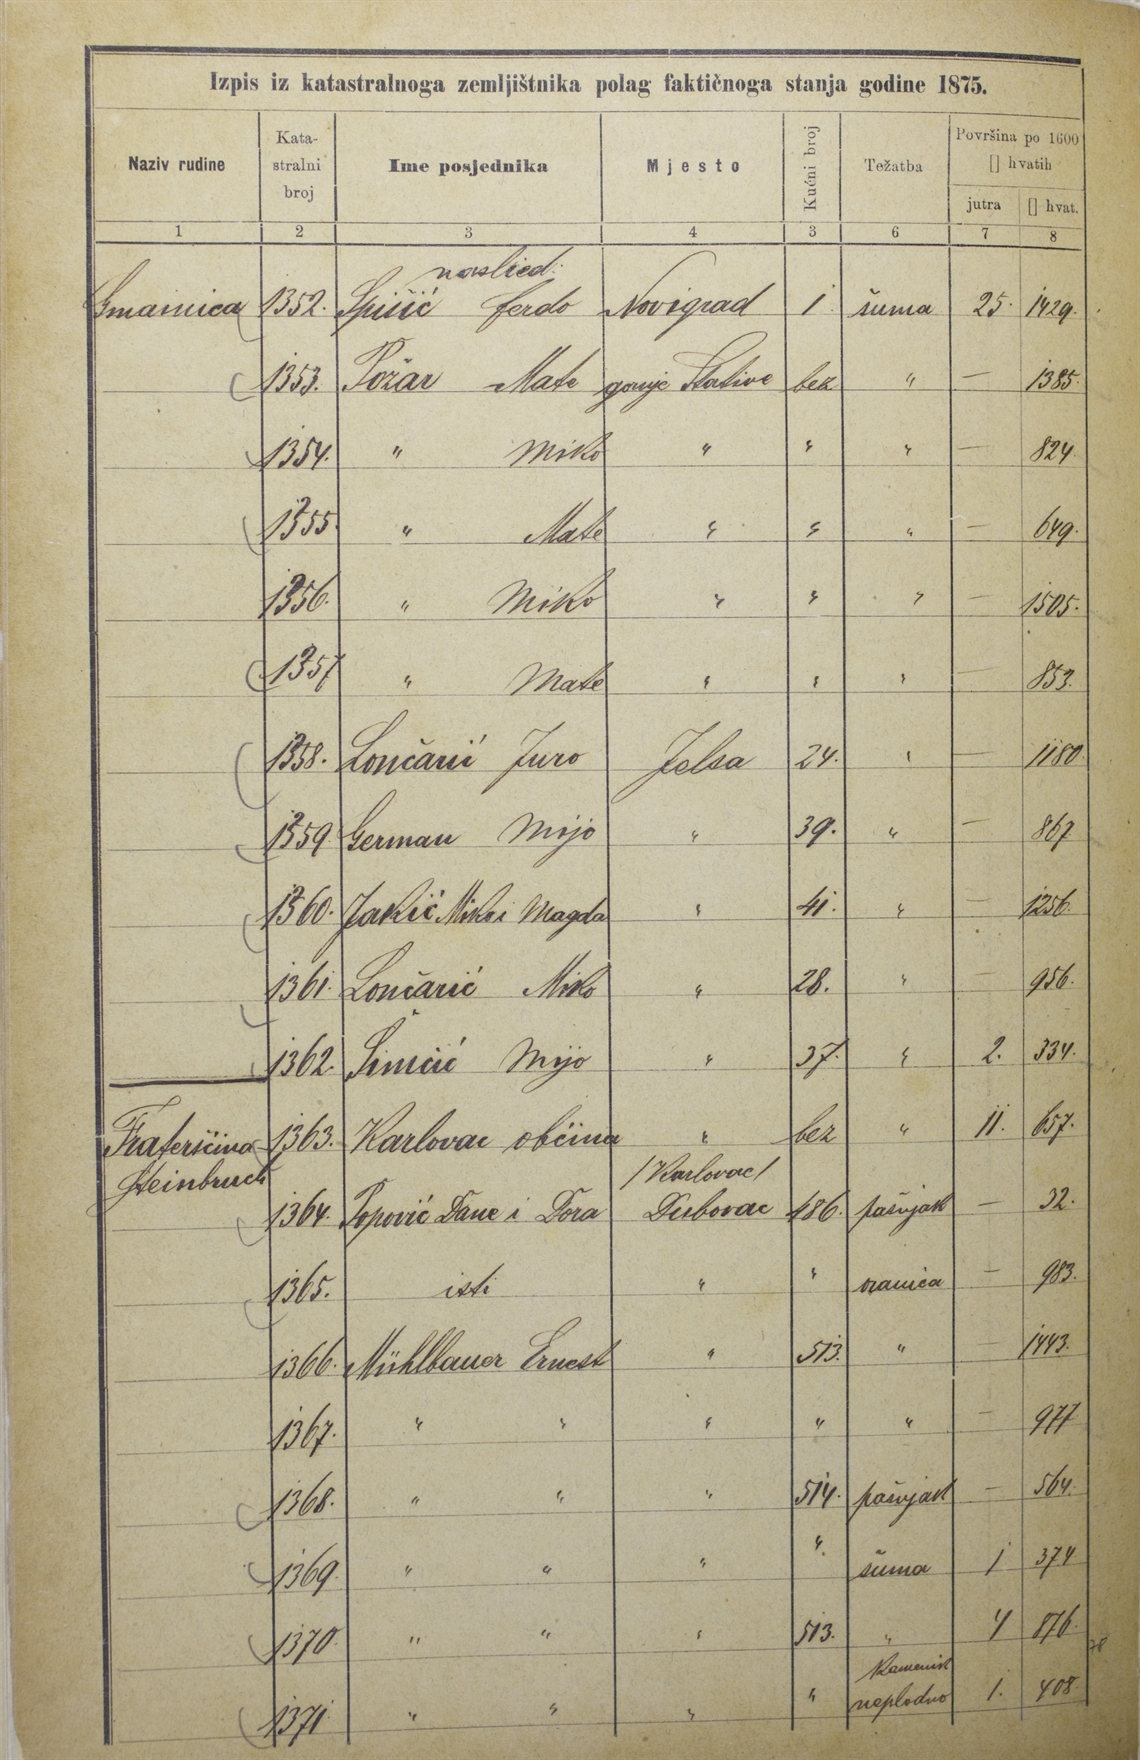 Izpis iz katastralnoga zemljištnika polag faktičnoga stanja godine 1875.
Naziv rudine Kata-stralni broj Ime posjednika Mjesto Kućni broj Težatba Površina po 1600 [] hvatih jutra [] hvat.
1 2 3 4 3 6 7 8
naslied:
Gmainica 1352. Spišić Ferdo Novigrad 1 šuma 25. 1429.
1353. Požar Mate gornje Stative bez " — 1385.
1354. " Miko " " " — 824.
1355. " Mate " " " — 649.
1356. " Miko " " " — 1505.
1357 " Mate " " " — 853.
1358. Lončarić Juro Jelsa 24. " — 1180
1359 German Mijo " 39. " — 867
1360. Jakić Miko i Magda " 41. " — 1256.
1361. Lončarić Miko " 28. " — 956.
1362. Šimčić Mijo " 37. " 2. 334.
Fraterščina 1363. Karlovac občina " bez " 11. 657.
Steinbruch /Karlovac/
1364. Popović Dane i Dora Dubovac 486. pašnjak — 32.
1365. isti " " oranica — 983.
1366. Mühlbauer Ernest " 513. " — 1443.
1367. " " " " " — 977
1368. " " " 514. pašnjak — 564.
1369. " " " " šuma 1 374
1370. " " " 513. " 4 876.
Kamenik
1371. " " " " neplodno 1. 408